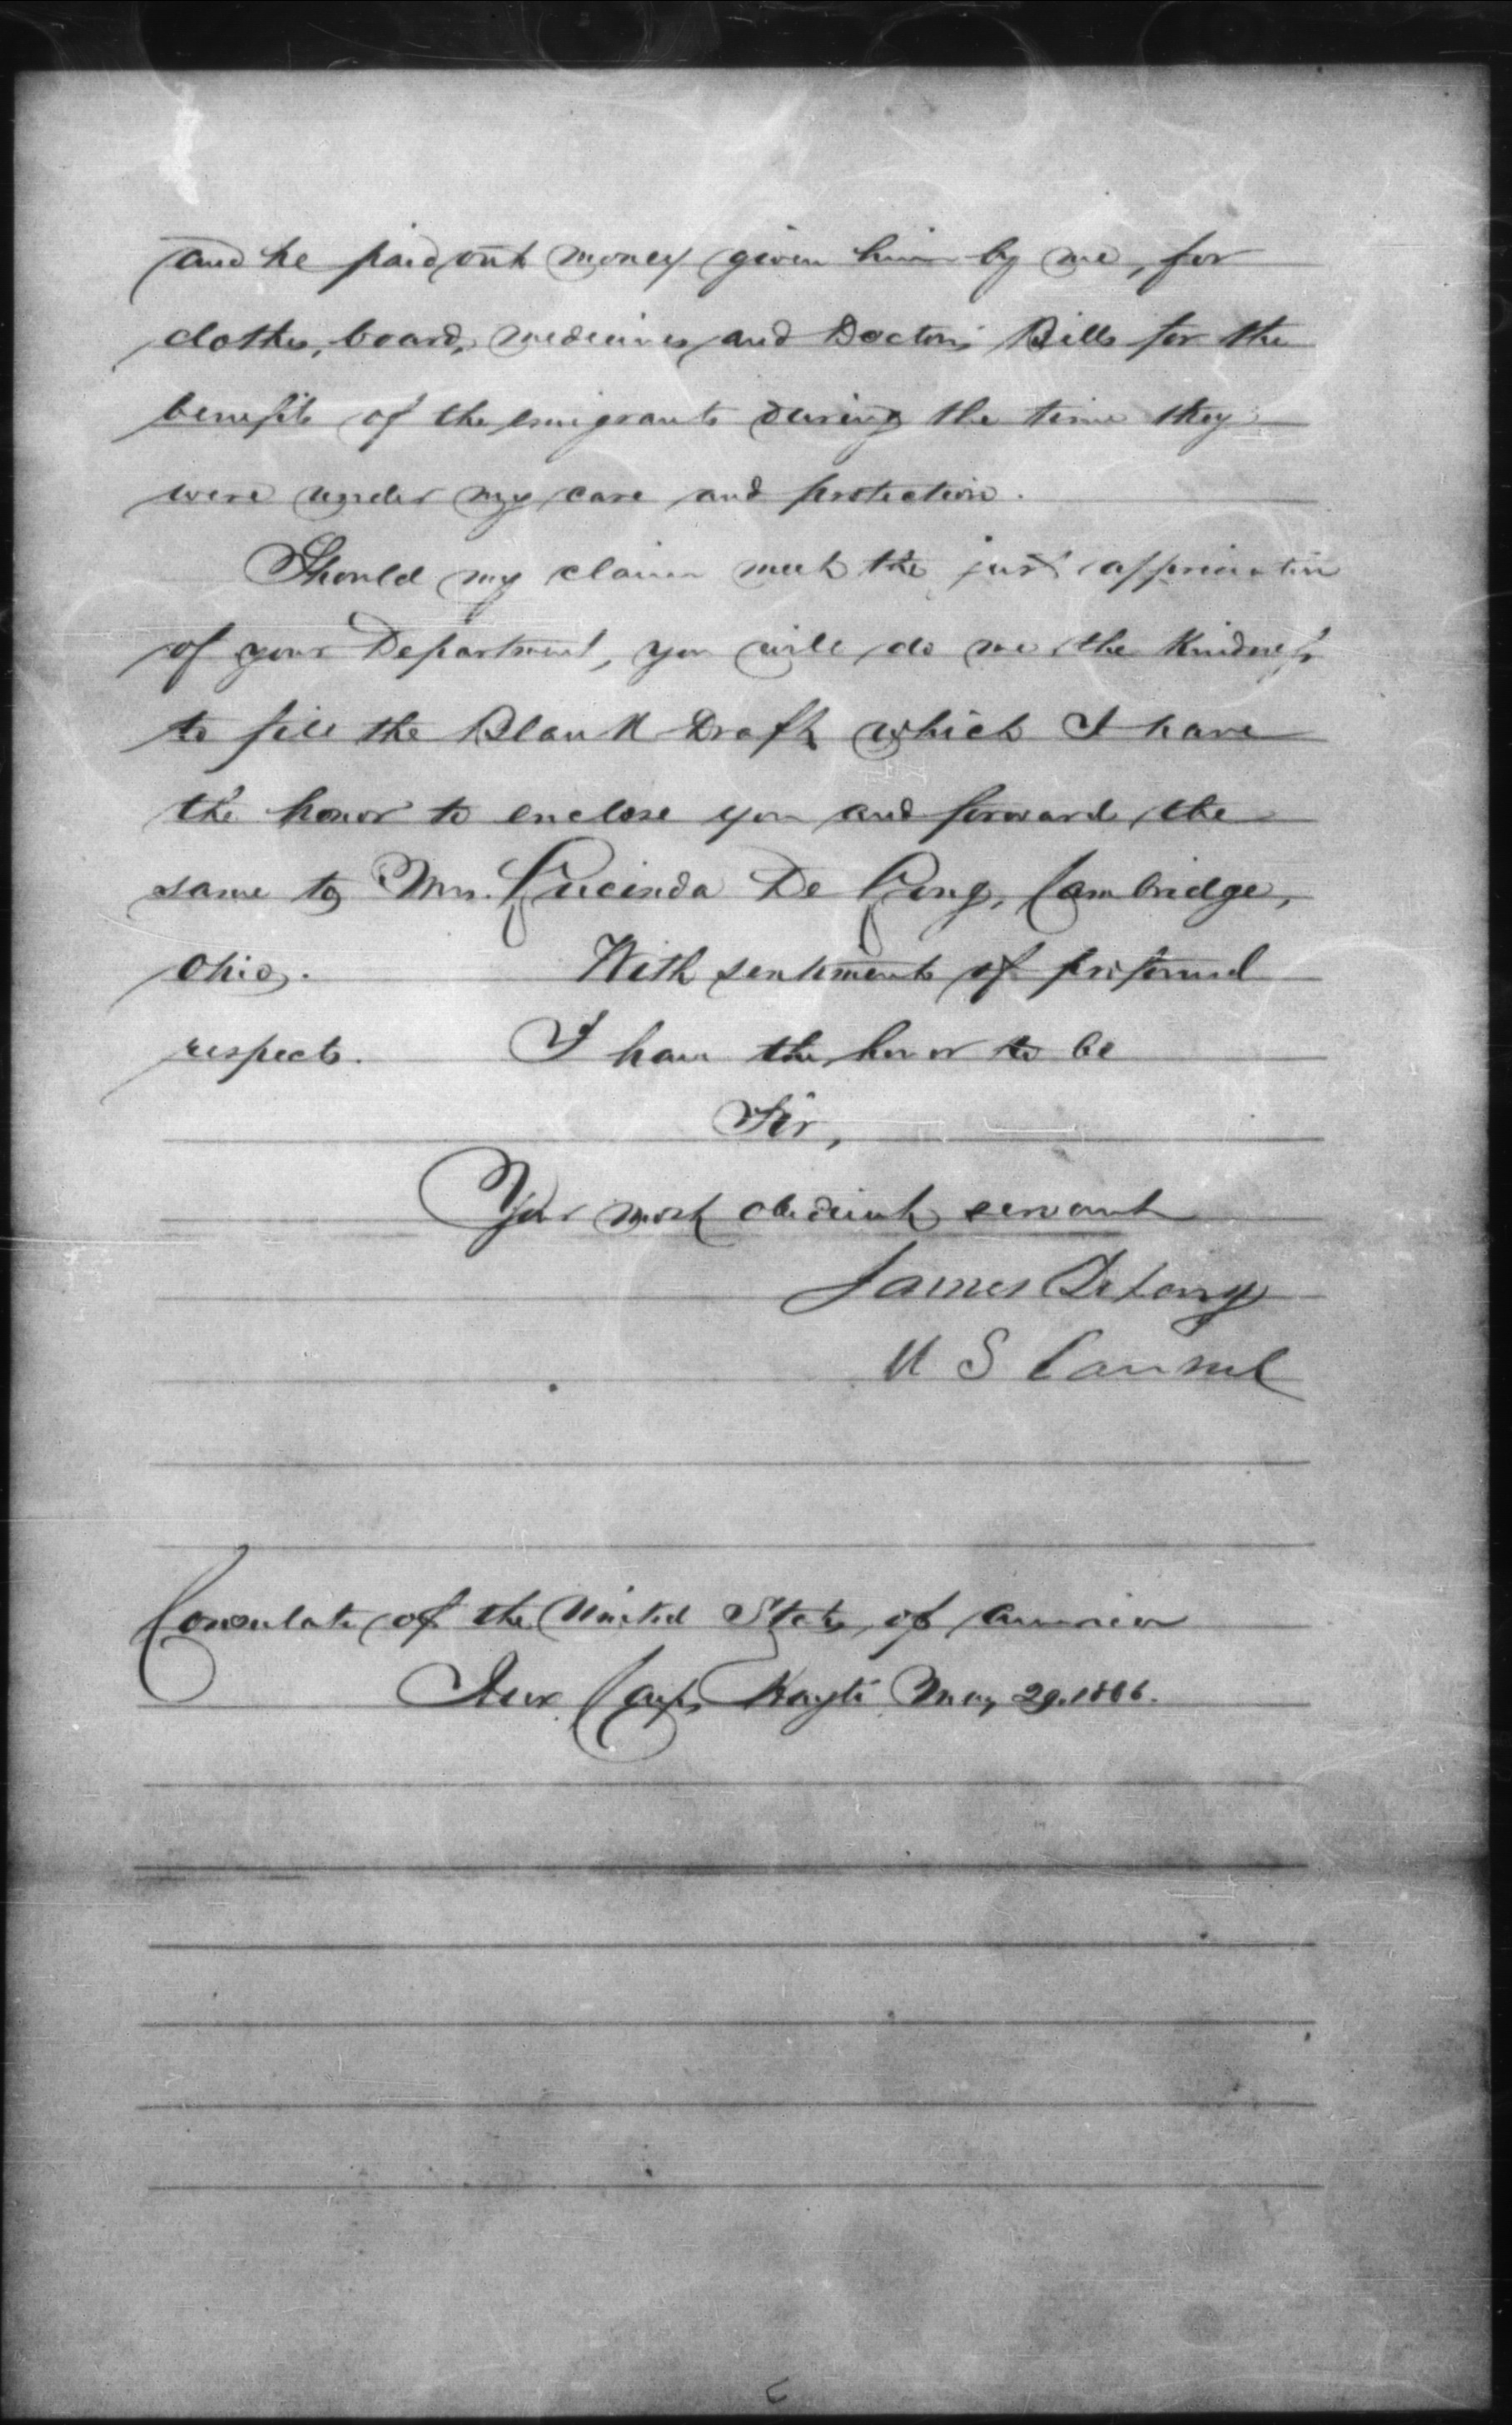 and he paid out money given him by me, for
clothes, board, medicines and Doctors Bills for the
benefit of the emigrants during the time they
were under my care and protection.
Should my claim meet the just appreciation
of your Department, you will do me the kindness
to fill the Blank Draft which I have
the honor to enclose you and forward the
same to Mrs. Lucinda De Long, Cambridge,
Ohio. With sentiments of profound
respect. I have the honor to be
Sir,
Your most obedient servant
James DeLong
U S Consul
Consulate of the United States of America
Aux Cayes Hayti May 29. 1866.